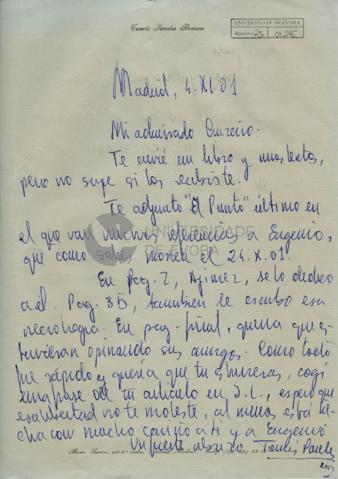 Tomás Paredes Romero
UNIVERSIDADE DE ÉVORA
Madrid, 4. XI. 01
Mi admirado Cruzeiro:
Te envié un libro y unos textos,
pero no supe si los recibiste.
Te adjunto "El Punto" último en
el que van muchas referencias a Eugenio,
que como sabes murió el 24.X.01.
UNIVERSIDADE DE ÉVORA
En pag. 2, Ajimez, se lo dedico
a él. Pag. 35, también le escribo esa
necrología. En pag. final, quería que es-
tuvieran opinando sus amigos. Como todo
fue rápido y quería que tu estuvieras, cogí
una frase de tu artículo en J.L., espero que
esa libertad no te moleste, al menos está he-
cha con mucho cariño a ti y a Eugenio
Un fuerte abrazo Tomás Paredes